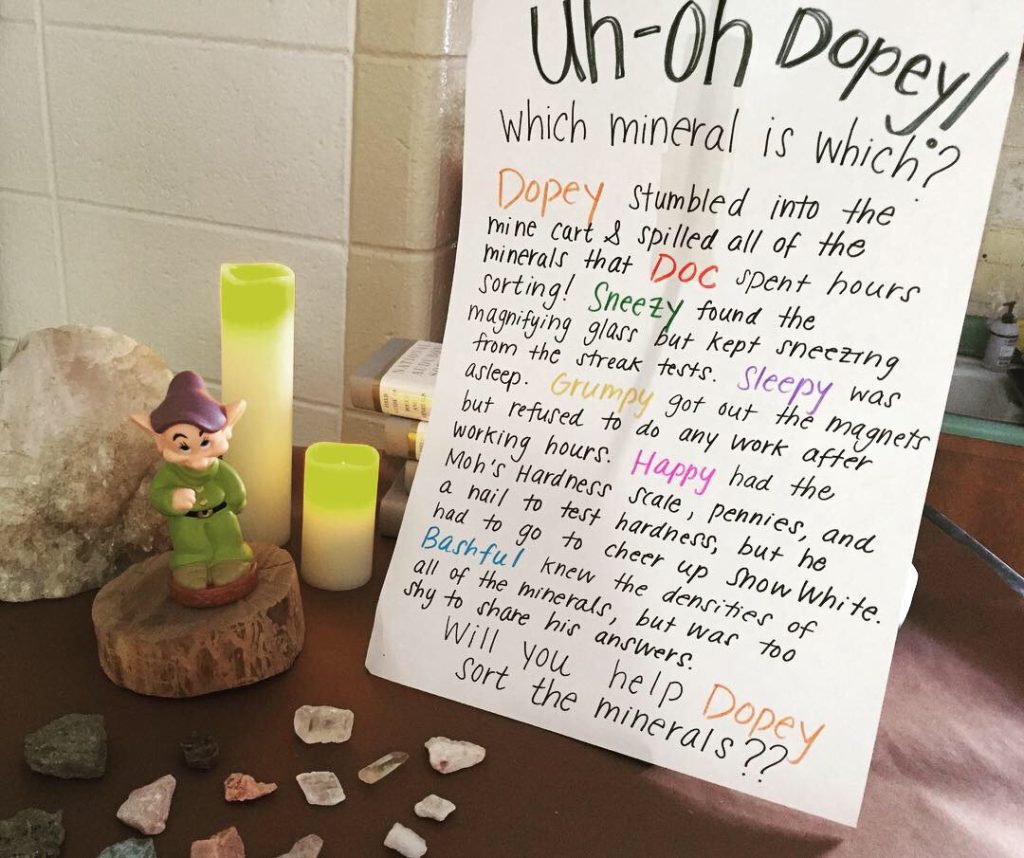 Uh-Oh Dopey!
Which mineral is which?
Dopey stumbled into the
mine cart & spilled all of the
minerals that Doc spent hours
sorting! Sneezy found the
magnifying glass but kept sneezing
from the streak tests. Sleepy was
asleep. Grumpy got out the magnets
but refused to do any work after
working hours. Happy had the
Moh's Hardness scale, pennies, and
a nail to test hardness, but he
had to go to cheer up Snow White.
Bashful knew the densities of
all of the minerals, but was too
shy to share his answers.
Will you help Dopey
sort the minerals??